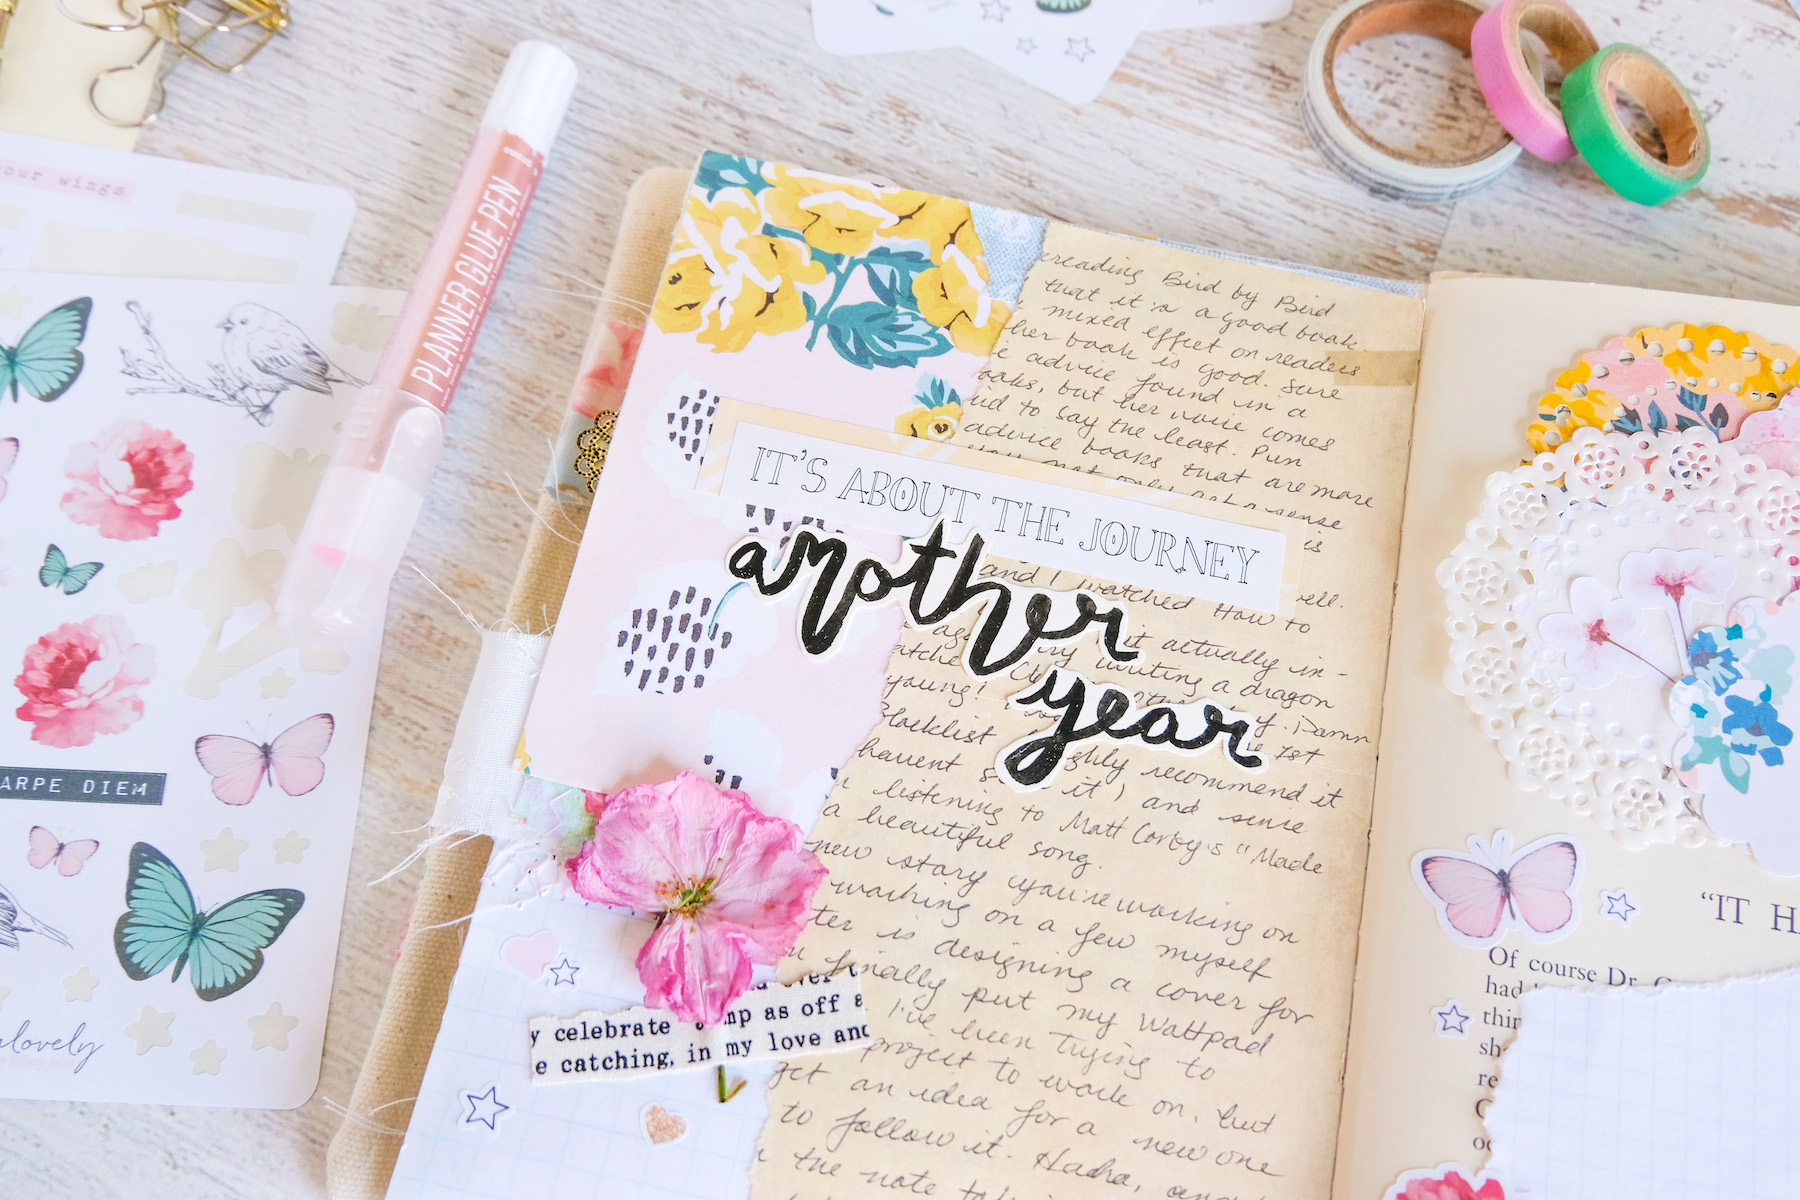 your wings
PLANNER GLUE PEN
ARPE DIEM
lovely
reading Bird by Bird
that it's a good book.
mixed effect on readers
her book is good. Sure
advice found in a
but her voice comes
to say the least. Pun
advice books that are more
you not only get a sense
is
IT'S ABOUT THE JOURNEY
another
year
ell.
and I watched How to
it actually in-
writing a dragon
young! Damn
Blacklist 1st
haven't s it) and since
ghly recommend it
listening to Matt Corby's "Made
a beautiful song.
new story you're working on
working on a few myself
ter is designing a cover for
finally put my Wattpad
I've been trying to
project to work on, but
get an idea for a new one
to follow it. Haha, and
the note to
ever
y celebrate mp as off a
e catching, in my love and
"IT H
Of course Dr. G
had
thin
sh
re